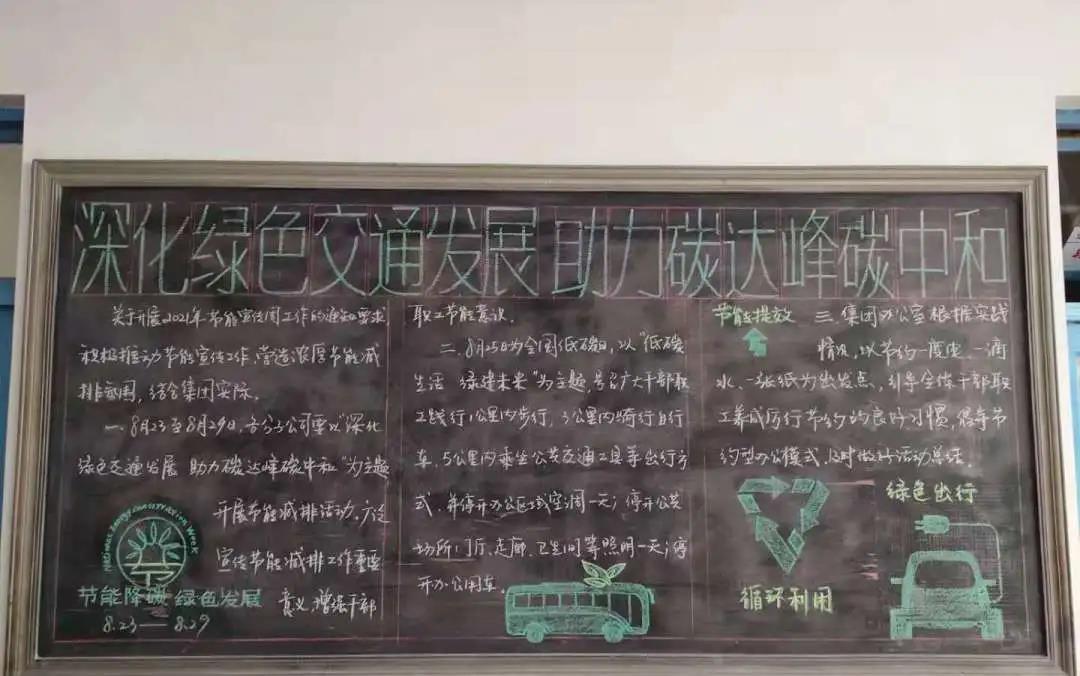 深化绿色交通发展 助力碳达峰碳中和
关于开展2021年节能宣传周工作的通知要求,
积极推动节能宣传工作,营造浓厚节能减
排氛围,结合集团实际。
一、8月23至8月29日,各分子公司要以“深化
绿色交通发展 助力碳达峰碳中和”为主题
开展节能减排活动,广泛
宣传节能减排工作重要
意义,增强干部
节能降碳 绿色发展
8.23—8.29
职工节能意识。
二、8月25日为全国低碳日,以“低碳
生活 绿建未来”为主题,号召广大干部职
工践行1公里内步行,3公里内骑行自行
车,5公里内乘坐公共交通工具等出行方
式,并停开办公区域空调一天;停开公共
场所:门厅、走廊、卫生间等照明一天;停
开办公用车。
节能提效
三、集团办公室根据实践
情况,以节约一度电、一滴
水、一张纸为出发点,引导全体干部职
工养成厉行节约的良好习惯,倡导节
约型办公模式,及时做好活动总结。
循环利用
绿色出行